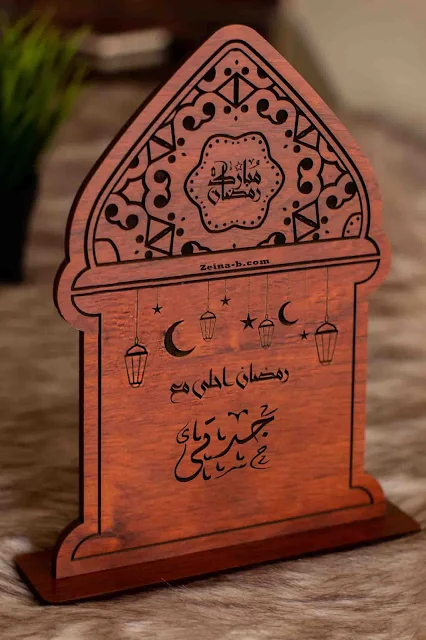 مبارك
رمضان
Zeina-b.com
رمضان احلى مع
جدتي